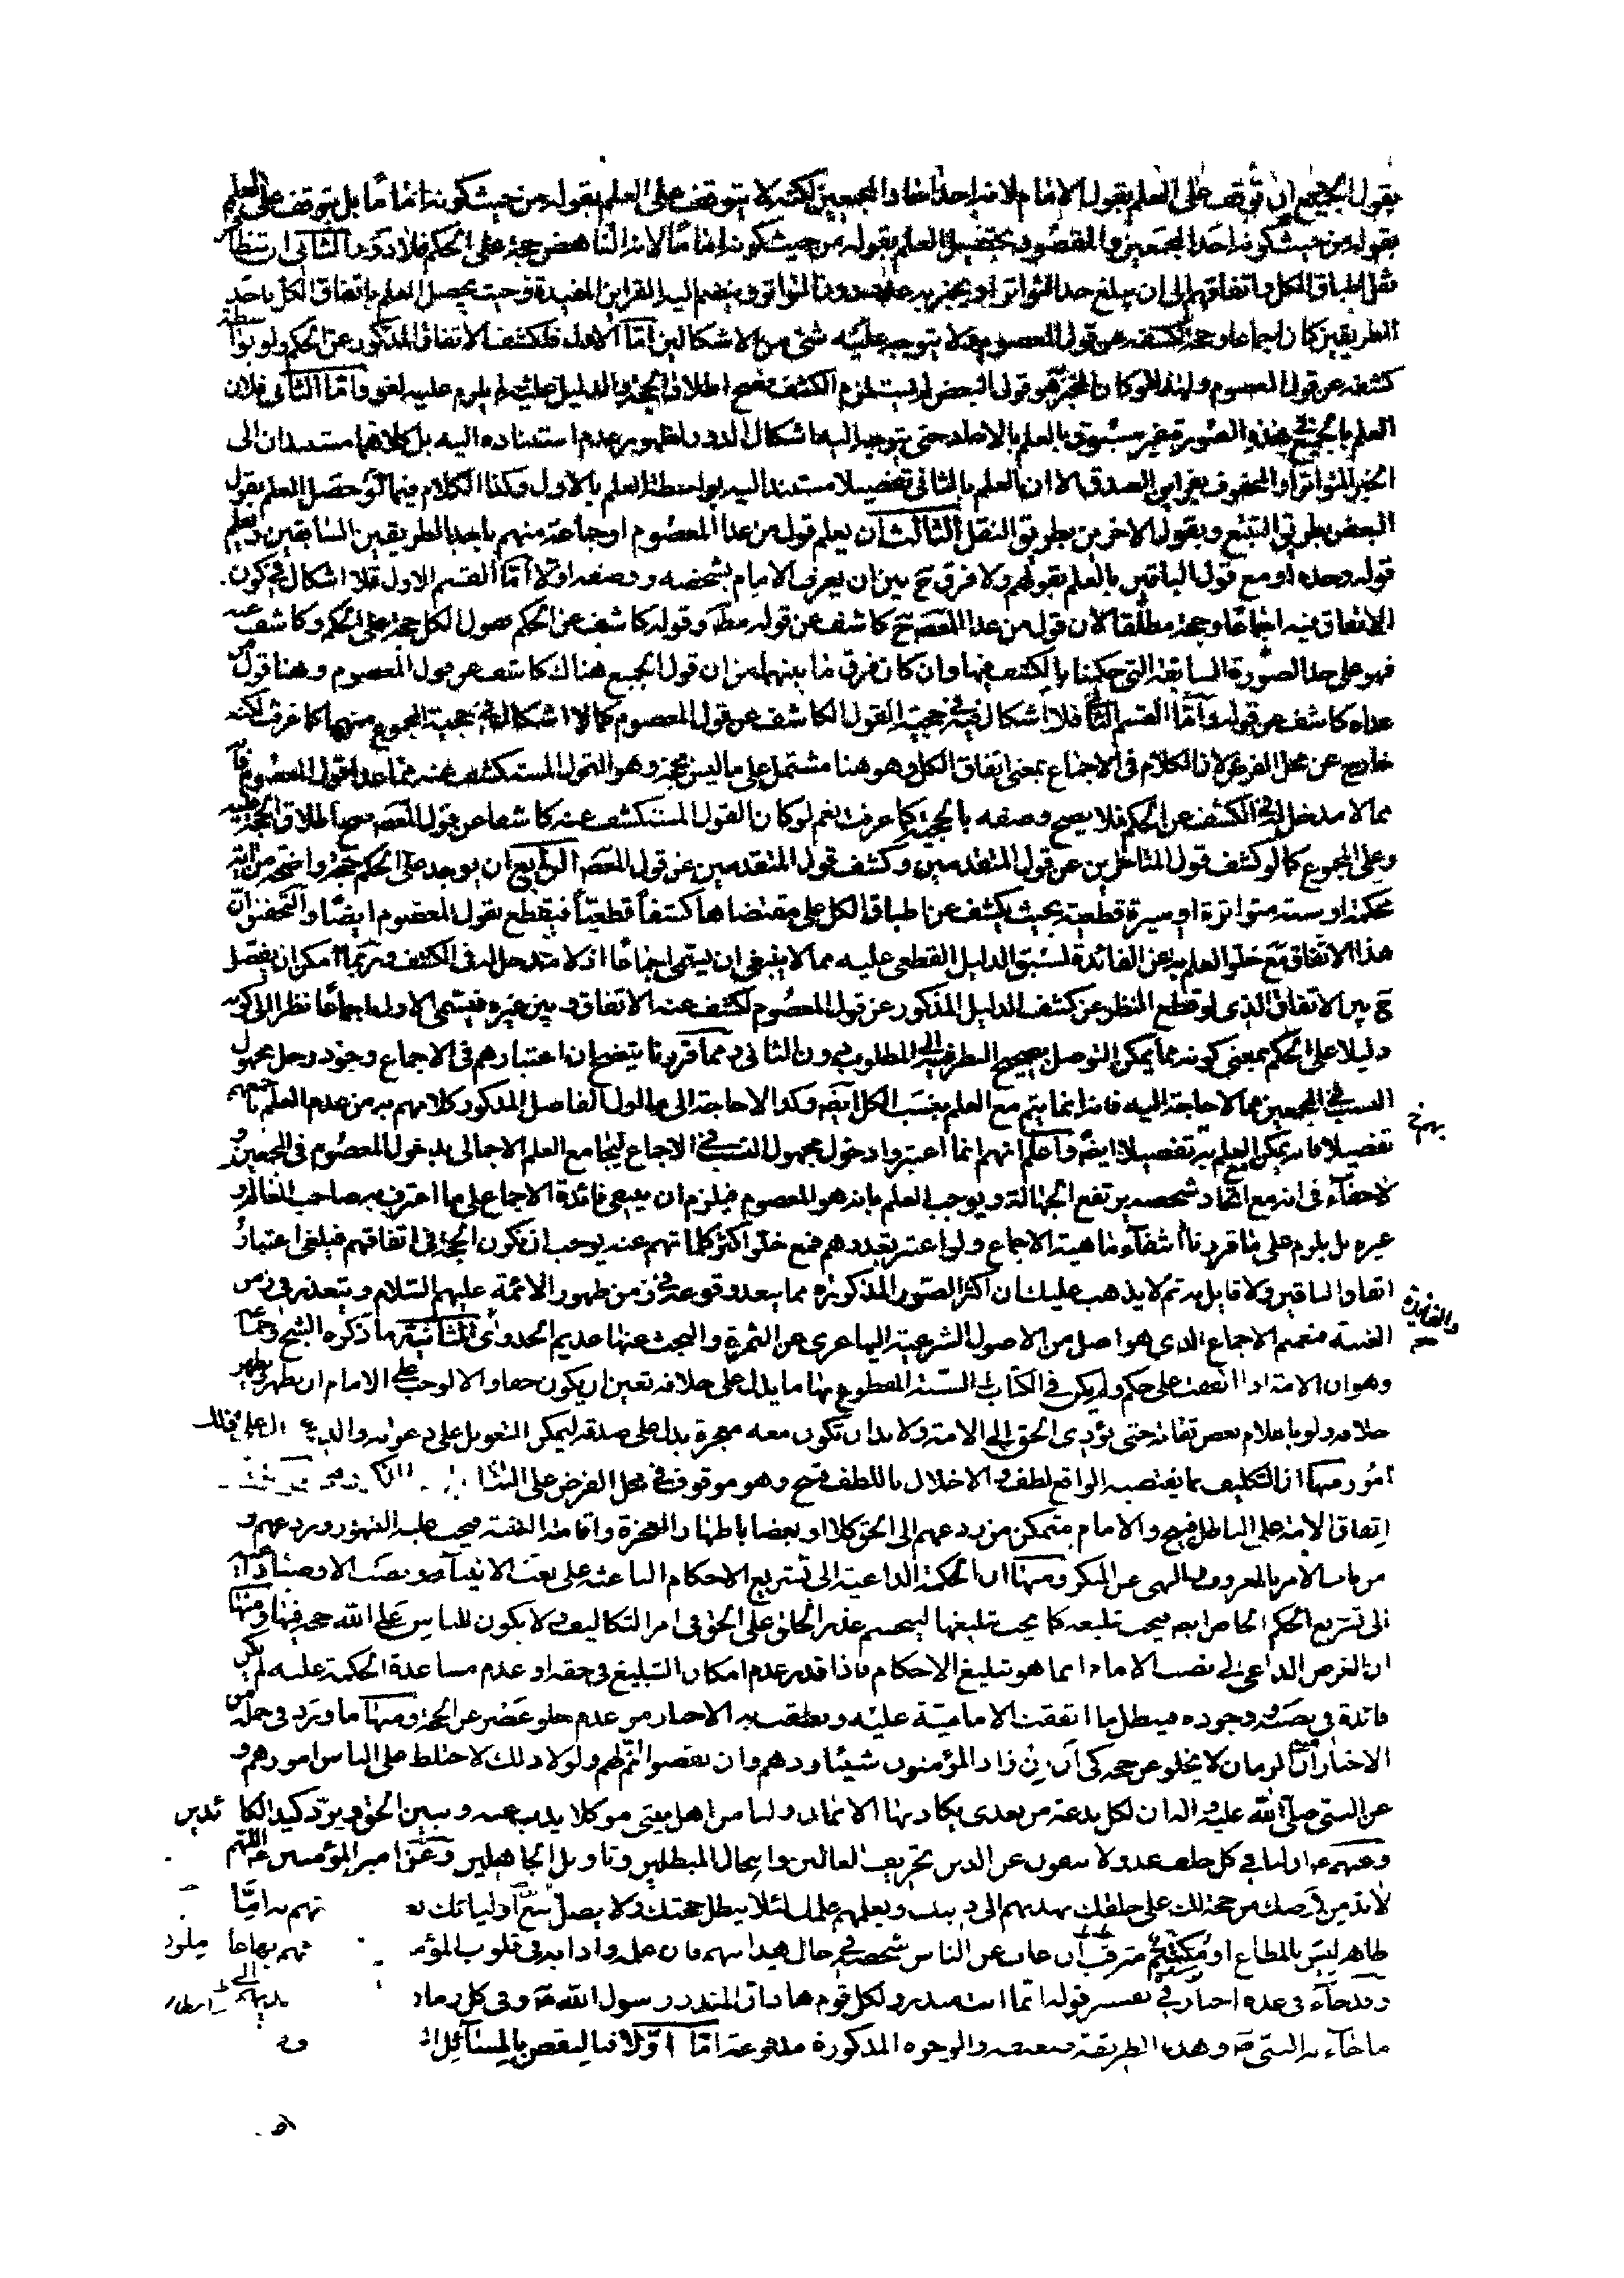 بقول الجميع ان توقف على العلم بقول الامام لانه احد احاد المجمعين لكنه لا يتوقف على العلم بقوله من حيث كونه اماما بل يتوقف على العلم
بقوله من حيث كونه احد المجمعين والمقصود تحصيل العلم بقوله من حيث كونه اماما لانه الناهض حجة على الحكم فلا دور الثاني ان يتظافر
نقل اطباق الكل واتفاقهم الى ان يبلغ حد التواتر او يخبر به عدد دون التواتر وينضم اليه القراين المفيدة وحيث يحصل العلم باتفاق الكل باحد
الطريقين كان اجماعا وحجة لكشفه عن قول المعصوم ولا يتوجه عليه شئ من الاشكالين اما الاول فلكشف الاتفاق المذكور عن الحكم ولو بواسطة
كشفه عن قول المعصوم ولهذا لو كان المخبر به هو قول البعض لم يستلزم الكشف فصح اطلاق الحجة والدليل عليه ولم يلزم عليه لغو واما الثاني فلان
العلم بالجميع في هذه الصورة غير مسبوق بالعلم بالاحاد حتى يتوجه اليه اشكال الدور لظهور عدم استناده اليه بل كلاهما مستندان الى
الخبر المتواتر او المحفوف بقراين الصدق الا ان العلم بالثاني تفصيلا مستند اليه بواسطة العلم بالاول وكذا الكلام فيما لو حصل العلم بقول
البعض بطريق التتبع وبقول الاخرين بطريق النقل الثالث ان يعلم قول من عدا المعصوم او جماعة منهم باحد الطريقين السابقين ويعلم
قوله وحده او مع قول الباقين بالعلم بقولهم ولا فرق ح بين ان يعرف الامام بشخصه ووصفه او لا اما القسم الاول فلا اشكال في كون
الاتفاق فيه اجماعا وحجة مطلقا لان قول من عدا المعصوم ح كاشف عن قوله مط وقوله كاشف عن الحكم فقول الكل حجة على الحكم وكاشف عنه
فهو على حد الصورة السابقة التي حكمنا بالكشف فيها وان كان فرق ما بينهما من ان قول الجميع هناك كاشف عن قول المعصوم وهنا قول من
عداه كاشف عن قوله واما القسم الثاني فلا اشكال فيه في حجية القول الكاشف عن قول المعصوم كما لا اشكال في حجية المجموع منهما كما عرفت لكنه
خارج عن محل الفرض لان الكلام في الاجماع بمعنى اتفاق الكل وهو هنا مشتمل على ما ليس بحجة وهو القول المستكشف عنه مما عدا قول المعصوم فانه
مما لا مدخل له في الكشف عن الحكم فلا يصح وصفه بالحجية كما عرفت نعم لو كان القول المستكشف عنه كاشفا عن قول المعصوم صح اطلاق الحجة عليه
وعلى المجموع كما لو كشف قول المتاخرين عن قول المتقدمين وكشف قول المتقدمين عن قول المعصوم الرابع ان يوجد على الحكم حجة واضحة من اية
محكمة او سنة متواترة او سيرة قطعية بحيث يكشف عن اطباق الكل على مقتضاها كشفا قطعيا فيقطع بقول المعصوم ايضا والتحقيق ان
هذا الاتفاق مع خلو العلم به عن الفائدة لسبق الدليل القطعي عليه مما لا ينبغي ان يسمى اجماعا اذ لا مدخل له في الكشف وربما امكن ان يفصل
ح بين الاتفاق الذي لو قطع النظر عن كشف الدليل المذكور عن قول المعصوم لكشف عنه الاتفاق وبين غيره فيسمى الاول اجماعا نظرا الى كونه
دليلا على الحكم بمعنى كونه مما يمكن التوصل بصحيح النظر فيه الى المطلوب دون الثاني ومما قررنا يتضح ان اعتبارهم في الاجماع وجود رجل مجهول
النسب في المجمعين مما لا حاجة اليه فانه انما يتم مع العلم بنسب الكل ايضا وكذا لا حاجة الى ما اول الفاضل المذكور كلامهم به من عدم العلم باعيانهم
تفصيلا فانه يمكن العلم به تفصيلا ايضا واعلم انهم انما اعتبروا دخول مجهول النسب في الاجماع ليجامع العلم الاجمالي بدخول المعصوم في المجمعين و
لا خفاء في انه مع اتحاد شخصه يرتفع الجهالة ويوجب العلم بانه هو المعصوم فيلزم ان ينتفي فائدة الاجماع على ما اعترف به صاحب المعالم و
غيره بل يلزم على ما قررنا انتفاء ماهية الاجماع ولو اعتبر تعددهم فمع خلو اكثر كلماتهم عنه يوجب ان يكون الحجة في اتفاقهم فيلغى اعتبار
اتفاق الباقين ولا قايل به ثم لا يذهب عليك ان اكثر الصور المذكورة مما يبعد وقوعه في زمن ظهور الائمة عليهم السلام ويتعذر في زمن
الغيبة فمعهم الاجماع الذي هو اصل من الاصول الشرعية اليها عري عن الثمرة والبحث عنها عديم الجدوى الثانية ما ذكره الشيخ وجماعة
وهو ان الامة اذا اتفقت على حكم ولم يكن في الكتاب والسنة المقطوع بها ما يدل على خلافه تعين ان يكون حقا والا لوجب على الامام ان يظهر
خلافه ولو باعلام بعض ثقاته حتى يؤدي الحق الى الامة ولا بد ان تكون معه معجزة يدل على صدقه ليمكن التعويل على دعواه والذي
امور منها ان التكليف بما يقتضيه الواقع لطف والاخلال باللطف قبيح وهو موقوف في محل الفرض على
اتفاق الامة على الباطل قبيح والامام متمكن من ردعهم الى الحق كلا او بعضا باظهار المعجزة واقامة البينة فيجب عليه الظهور وردعهم و
من باب الامر بالمعروف والنهي عن المنكر ومنها ان الحكمة الداعية الى تشريع الاحكام الباعثة على بعث الانبياء ونصب الاوصياء داعية
الى تشريع الحكم الخاص ايضا فيجب تبليغه كما يجب تبليغها لينحسم عذر الخلق على الحق في امر التكاليف ولا يكون للناس على الله حجة فيها ومنها
ان الغرض الداعي الى نصب الامام انما هو تبليغ الاحكام فاذا قدر عدم امكان التبليغ في حقه او عدم مساعدة الحكمة عليه لم يكن
فائدة في نصبه ووجوده فيبطل ما اتفقت الامامية عليه ونطقت به الاخبار من عدم خلو عصر عن الحجة ومنها ما ورد في جملة من
الاخبار ان الزمان لا يخلو عن حجة كي ان زاد المؤمنون شيئا ردهم وان نقصوا اتمه لهم ولولا ذلك لاختلط على الناس امورهم و
عن النبي صلى الله عليه واله ان لكل بدعة من بعدي يكاد بها الايمان وليا من اهل بيتي موكلا يذب عنه ويبين الحق ويرد كيد الكائدين
وعنهم ان لنا في كل خلف عدولا ينفون عن الدين تحريف الغالين وانتحال المبطلين وتاويل الجاهلين وعن امير المؤمنين اللهم
لا بد من ارضك من حجة لك على خلقك يهديهم الى دينك ويعلمهم علمك لئلا يبطل حجتك ولا يضل تبع اوليائك بعد
ظاهر ليس بالمطاع او مكتتم مترقب ان غاب عن الناس شخصه في حال هدايتهم فان علمه وادابه في قلوب
وقد جاء في عدة اخبار في تفسير قوله انما انت منذر ولكل قوم هاد ان المنذر رسول الله ص وفي كل زمان
ما جاء به النبي ص وهذه الطريقة ضعيفة والوجوه المذكورة مدفوعة اما اولا فبالنقض بالمسائل